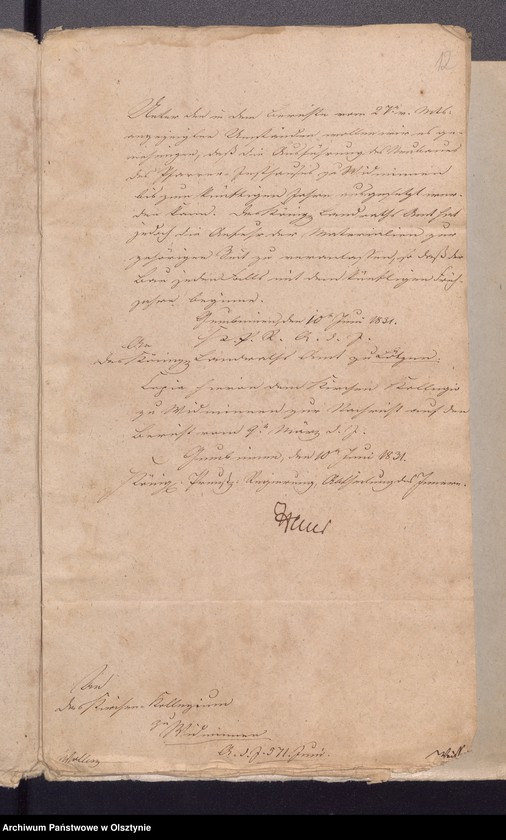 12
Unter den in dem Berichte vom 27t. v. Mts.
angezeigten Umständen wollen wir es ge-
nehmigen, daß die Ausführung des Neubaues
des Pfarr-Insthauses zu Widminnen
bis zum künftigen Jahre ausgesetzt wer-
den kann. Das Königl. Landraths Amt hat
jedoch die Anfuhr der Materialien zur
gehörigen Zeit zu veranlassen, so daß der
Bau jeden Falls mit dem künftigen Früh-
jahre beginne.
Gumbinnen, den 10ten Juni 1831.
K. P. R. A. d. I.
An
das Königl. Landraths Amt zu Lötzen.
Copia hievon dem Kirchen Kollegio
zu Widminnen zur Nachricht auf den
Bericht vom 9t. März d. J.
Gumbinnen, den 10ten Juni 1831.
Königl. Preuß. Regierung, Abtheilung des Innern.
An
das Kirchen-Kollegium
zu Widminnen
A. d. I. 271. Juni.
Archiwum Państwowe w Olsztynie